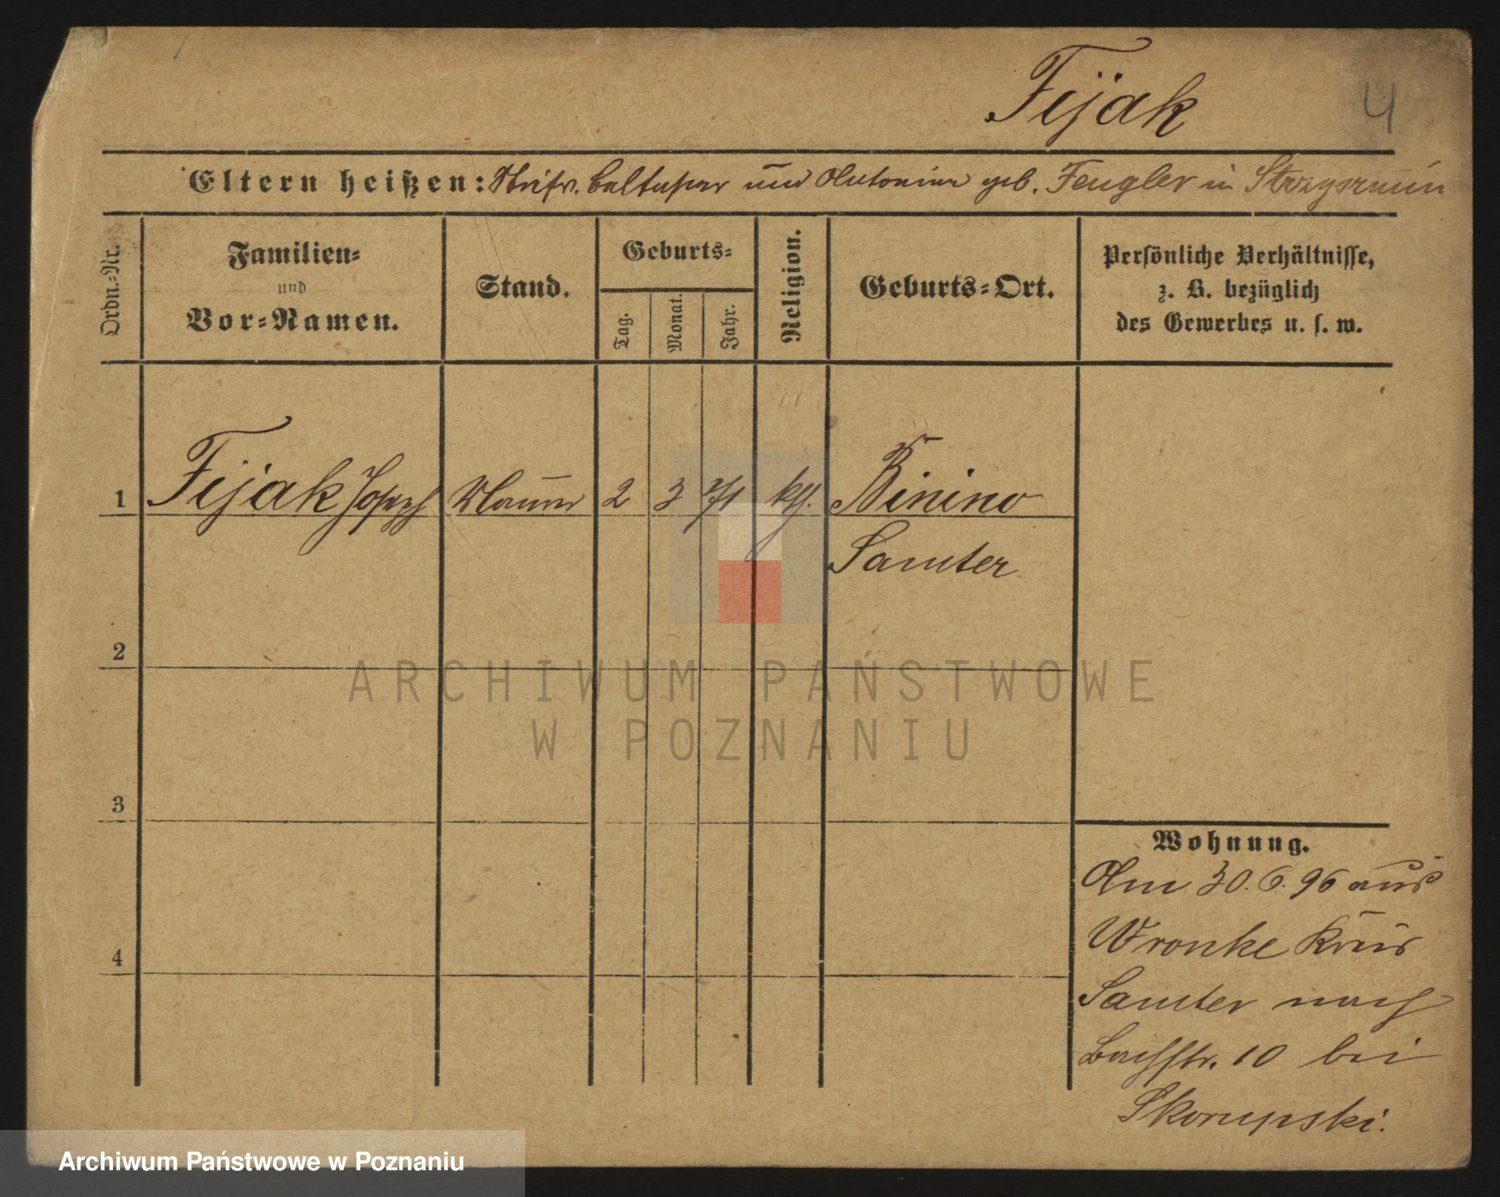 Fijak
4
Eltern heißen: Baltasar und Antonina geb. Fengler in
Ordn.-Nr.
Familien-
und
Vor-Namen.
Stand.
Geburts-
Tag.
Monat.
Jahr.
Religion.
Geburts-Ort.
Persönliche Verhältnisse,
z. B. bezüglich
des Gewerbes u. s. w.
1 Fijak Joseph Maurer 2 3 71 kth. Binino
Samter
2
3
4
Wohnung.
Am 30.6.96 aus
Wronke Kreis
Samter nach
Bachstr. 10 bei
Skorupski.
ARCHIWUM PAŃSTWOWE
W POZNANIU
Archiwum Państwowe w Poznaniu